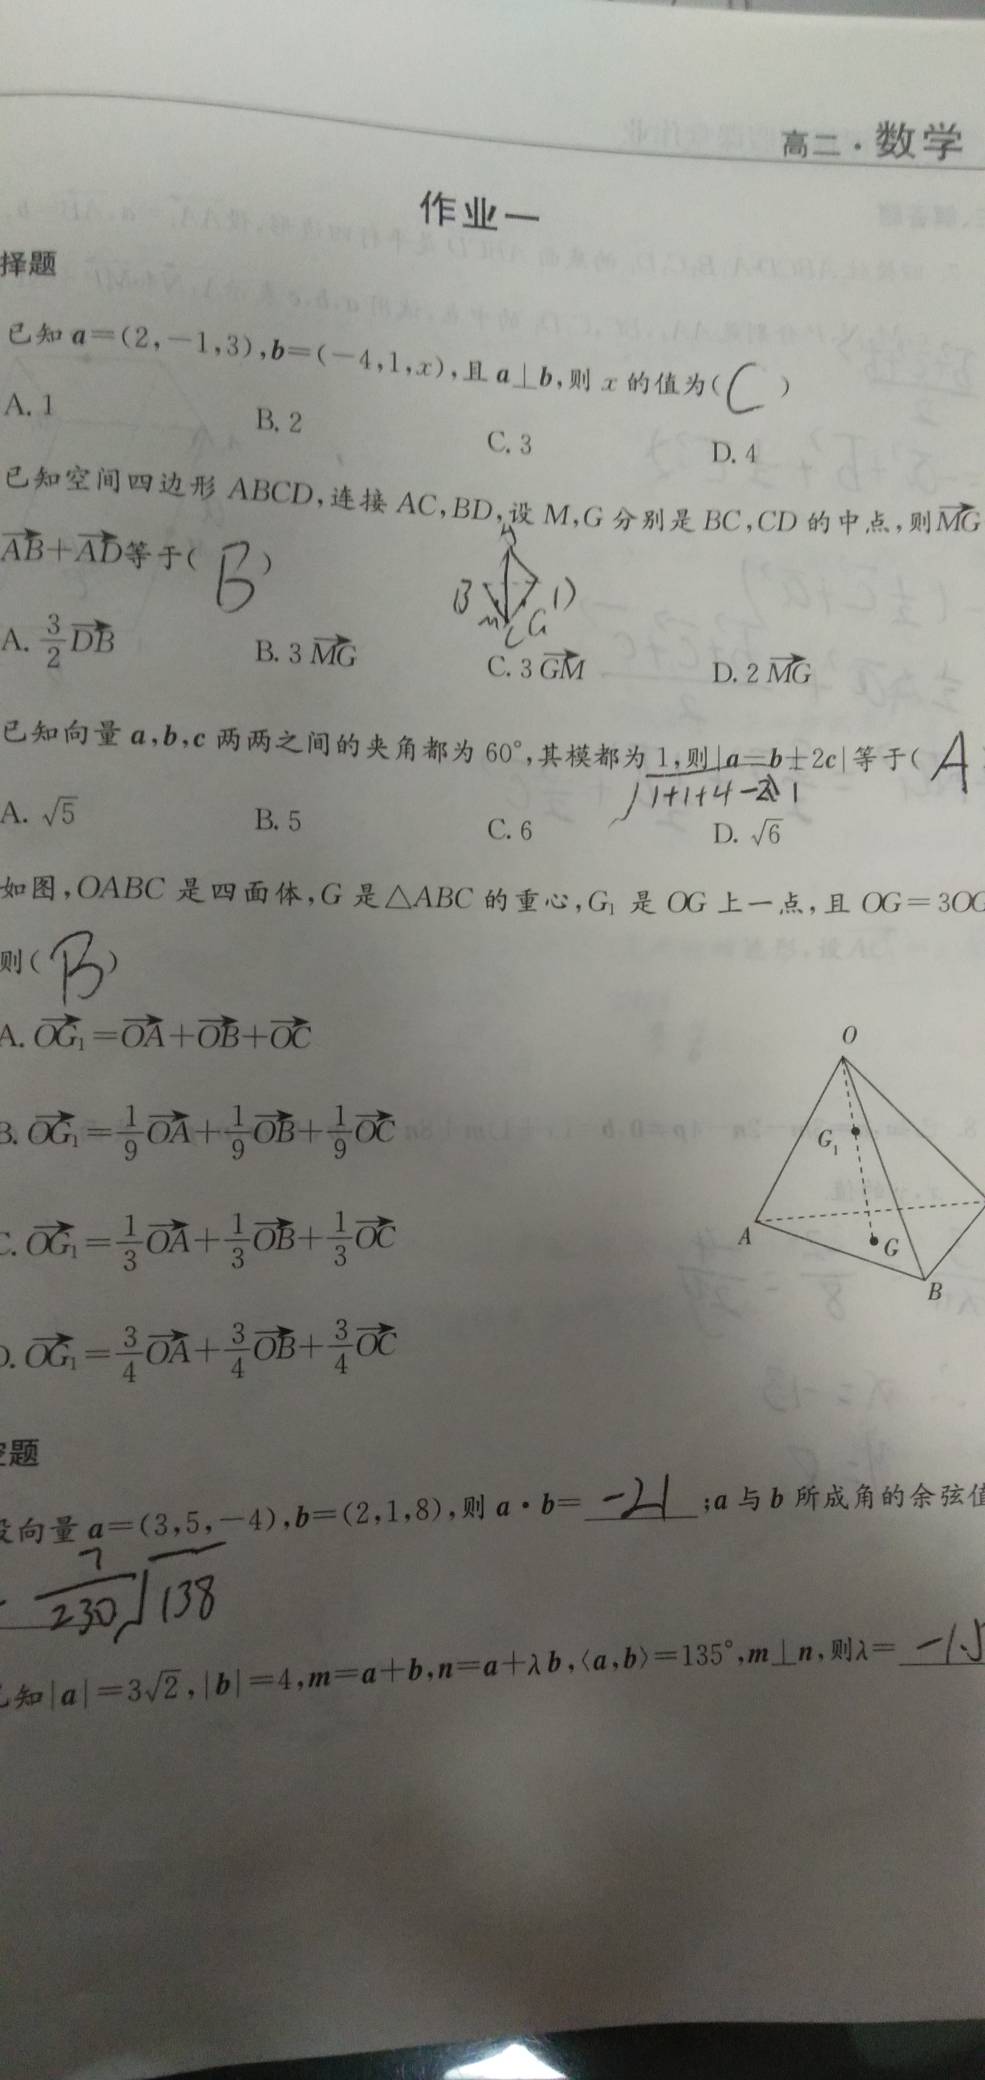 高二·数学
作业一
择题
已知a=(2,-1,3),b=(-4,1,x),且a⊥b,则x的值为( C )
A. 1 B. 2 C. 3 D. 4
已知空间四边形ABCD,连接AC,BD,设M,G分别是BC,CD的中点,则MG
AB+AD等于( B )
A B D M C G
A. 3/2 DB B. 3MG C. 3GM D. 2MG
已知向量a,b,c两两之间的夹角都为60°,其模都为1,则|a-b+2c|等于( A
A. √5 B. 5 C. 6 D. √6
如图,OABC是四面体,G是△ABC的重心,G₁是OG上一点,且OG=3OG
则( B )
A. OG₁=OA+OB+OC
B. OG₁=1/9 OA+1/9 OB+1/9 OC
C. OG₁=1/3 OA+1/3 OB+1/3 OC
D. OG₁=3/4 OA+3/4 OB+3/4 OC
O
G₁
A G
B
空题
设向量a=(3,5,-4),b=(2,1,8),则a·b= -21 ;a与b所成角的余弦值
- 7/230 √138
已知|a|=3√2,|b|=4,m=a+b,n=a+λb,⟨a,b⟩=135°,m⊥n,则λ= -1.5